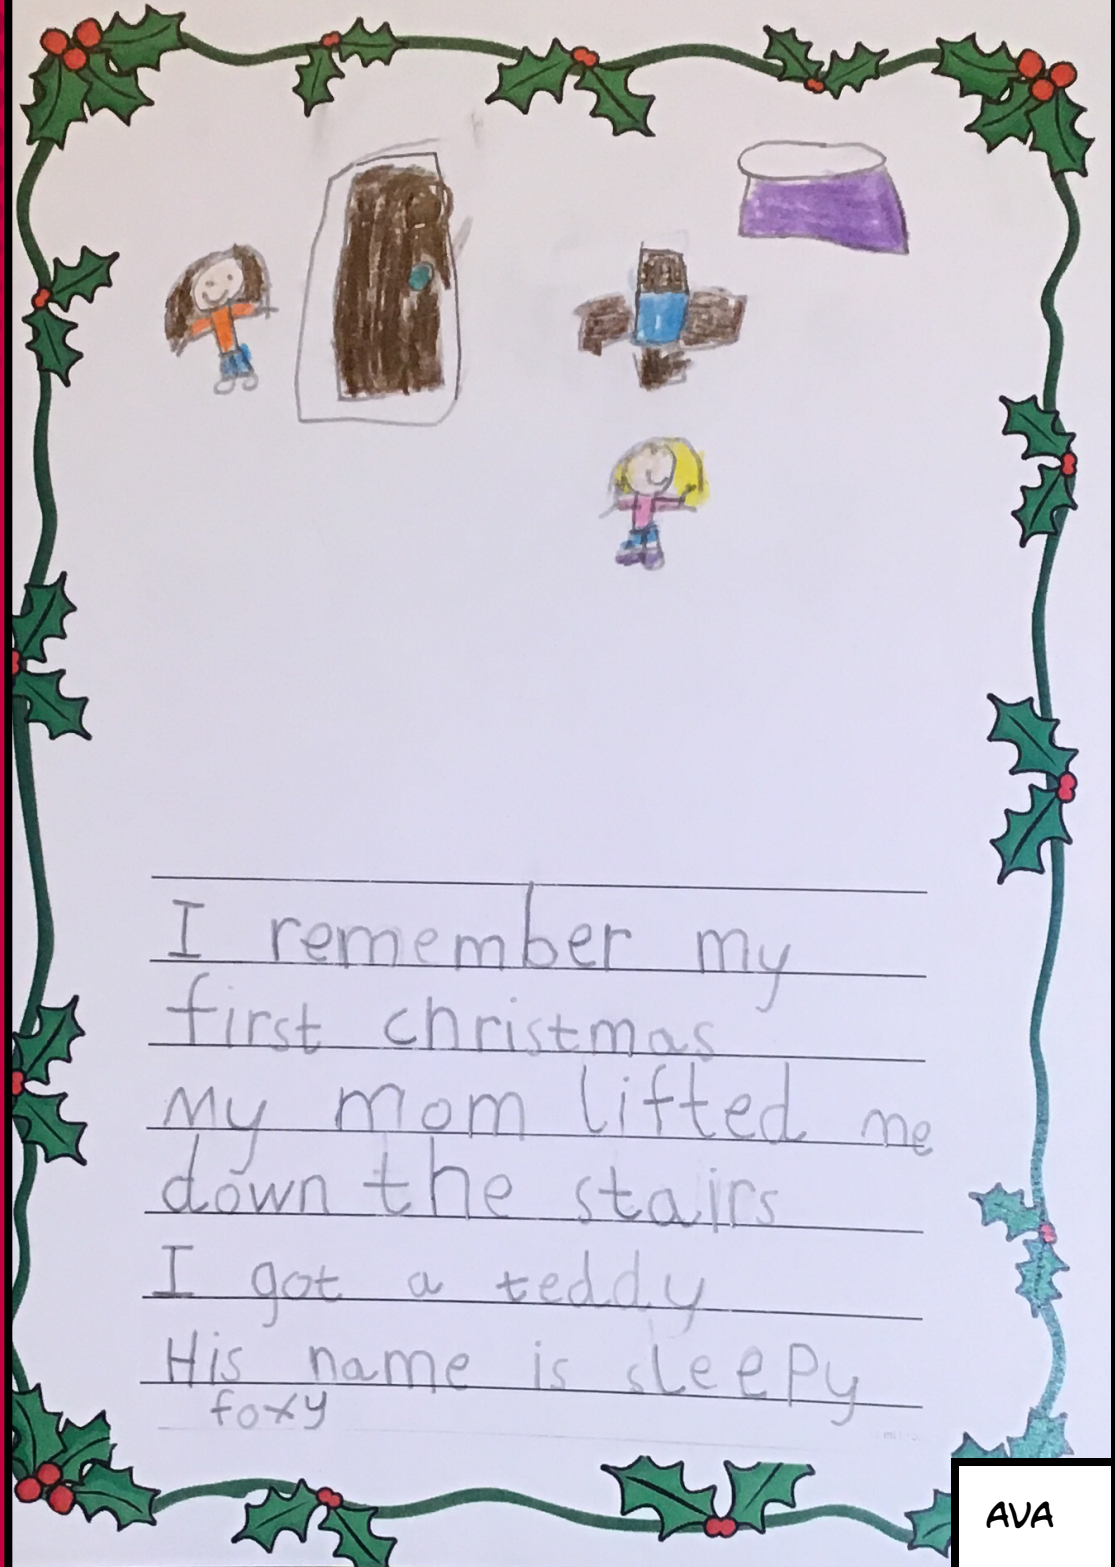 I remember my
first christmas
My mom lifted me
down the stairs
I got a teddy
His name is sleepy
foxy
AVA